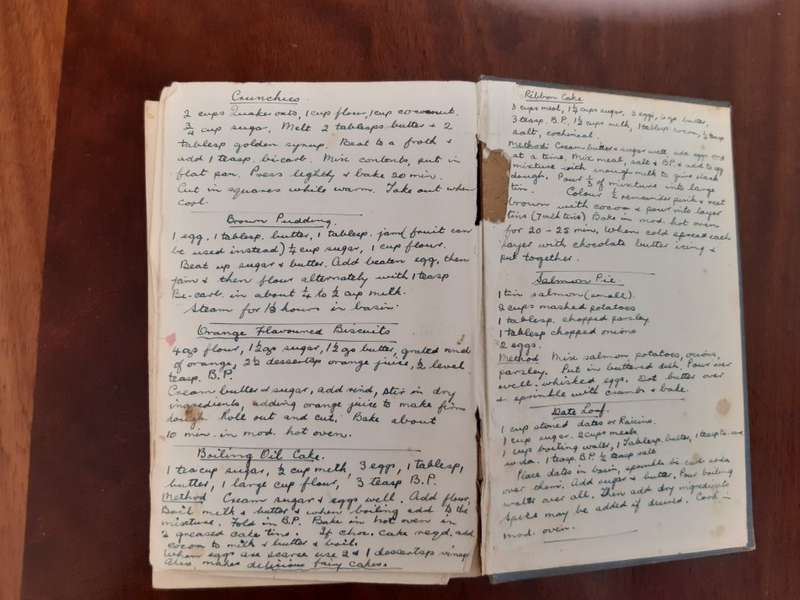 Crunchies
2 cups Quaker oats, 1 cup flour, 1 cup coconut.
3/4 cup sugar. Melt 2 tablesps butter & 2
tablesp golden syrup. Beat to a froth &
add 1 teasp. bi-carb. Mix contents, put in
flat pan. Press lightly & bake 20 min.
Cut in squares while warm. Take out when
cool.
Brown Pudding.
1 egg, 1 tablesp. butter, 1 tablesp. jam (fruit can
be used instead) 1/4 cup sugar, 1 cup flour.
Beat up sugar & butter. Add beaten egg, then
jam & then flour alternately with 1 teasp
Bi-carb. in about 1/4 to 1/2 cup milk.
Steam for 1 1/2 hours in basin.
Orange Flavoured Biscuits
4 ozs flour, 1 1/2 ozs sugar, 1 1/2 ozs butter, grated rind
of orange, 2 1/2 dessertsp orange juice, 1/2 level
teasp. B.P.
Cream butter & sugar, add rind, stir in dry
ingredients, adding orange juice to make firm
dough. Role out and cut. Bake about
10 min. in mod. hot oven.
Boiling Oil Cake.
1 teacup sugar, 1/2 cup milk, 3 eggs, 1 tablesp,
butter, 1 large cup flour, 3 teasp B.P.
Method Cream sugar & eggs well. Add flour,
Boil milk & butter & when boiling add to the
mixture. Fold in B.P. Bake in hot oven in
2 greased cake tins. If choc. cake reqd, add
cocoa to milk & butter & boil.
When eggs are scarce use 2 & 1 dessertsp vinegar
Also, makes delicious fairy cakes.
Ribbon Cake
3 cups meal, 1 1/2 cups sugar, 3 eggs, butter,
3 teasp. B.P. 1 1/2 cups milk, 1 tablesp cocoa, 1/2 teasp
salt, cochineal.
Method: Cream butter & sugar well, add eggs one
at a time. Mix meal, salt & B.P. & add to egg
mixture with enough milk to give slack
dough. Pour 1/3 of mixture into large
tin. Colour 1/2 remainder pink & rest
brown with cocoa & pour into layer
tins (7 inch tins) Bake in mod. hot oven
for 20 - 25 min. When cold spread each
layer with chocolate butter icing &
put together.
Salmon Pie.
1 tin salmon (small).
2 cups mashed potatoes
1 tablesp. chopped parsley
1 tablesp chopped onions
2 eggs.
Method Mix salmon potatoes, onions,
parsley. Put in buttered dish. Pour over
well whisked eggs. Dot butter over
& sprinkle with crumbs & bake.
Date Loaf.
1 cup stoned dates or Raisins.
1 cup sugar. 2 cups meal.
1 cup boiling water, 1 Tablesp. butter, 1 teasp bi-carb
soda. 1 teasp. B.P. 1/2 teasp salt
Place dates in basin, sprinkle bi carb soda
over them. Add sugar & butter. Pour boiling
water over all. Then add dry ingredients
Spices may be added if desired. Cook in
mod. oven.